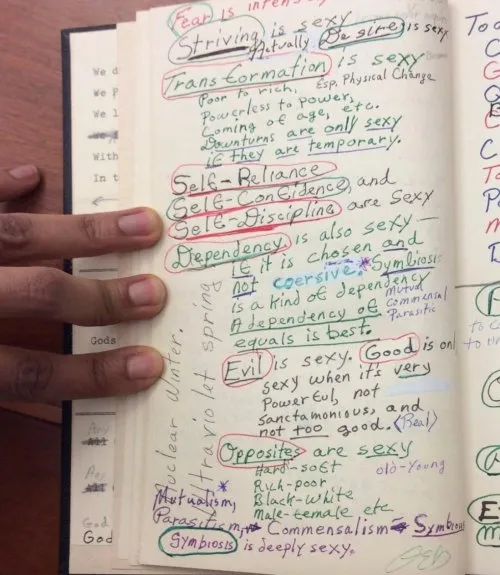 Fear is intens
Striving is sexy
Mutually Desire is sexy
Transformation is sexy
Poor to rich, Esp. Physical Change
Powerless to power,
Coming of age, etc.
Downturns are only sexy
if they are temporary.
Self-Reliance
Self-Confidence, and
Self-Discipline are sexy
Dependency is also sexy—
if it is chosen and
not coersive. *Symbiosis
is a kind of dependency
A dependency of
equals is best.
Mutual
Commensal
Parasitic
Evil is sexy. Good is onl
sexy when it's very
powerful, not
sanctamonious, and
not too good. <Real>
Opposites are sexy
Hard-soft old-young
Rich-poor
Black-white
Male-female etc.
*
Mutualism,
Parasitism, Commensalism Symbios
Symbiosis is deeply sexy.
Nuclear Winter.
ltraviolet spring
We d
We p
We l
With
In t
Gods
Any
God
God
Tod
C
G
C
To
P